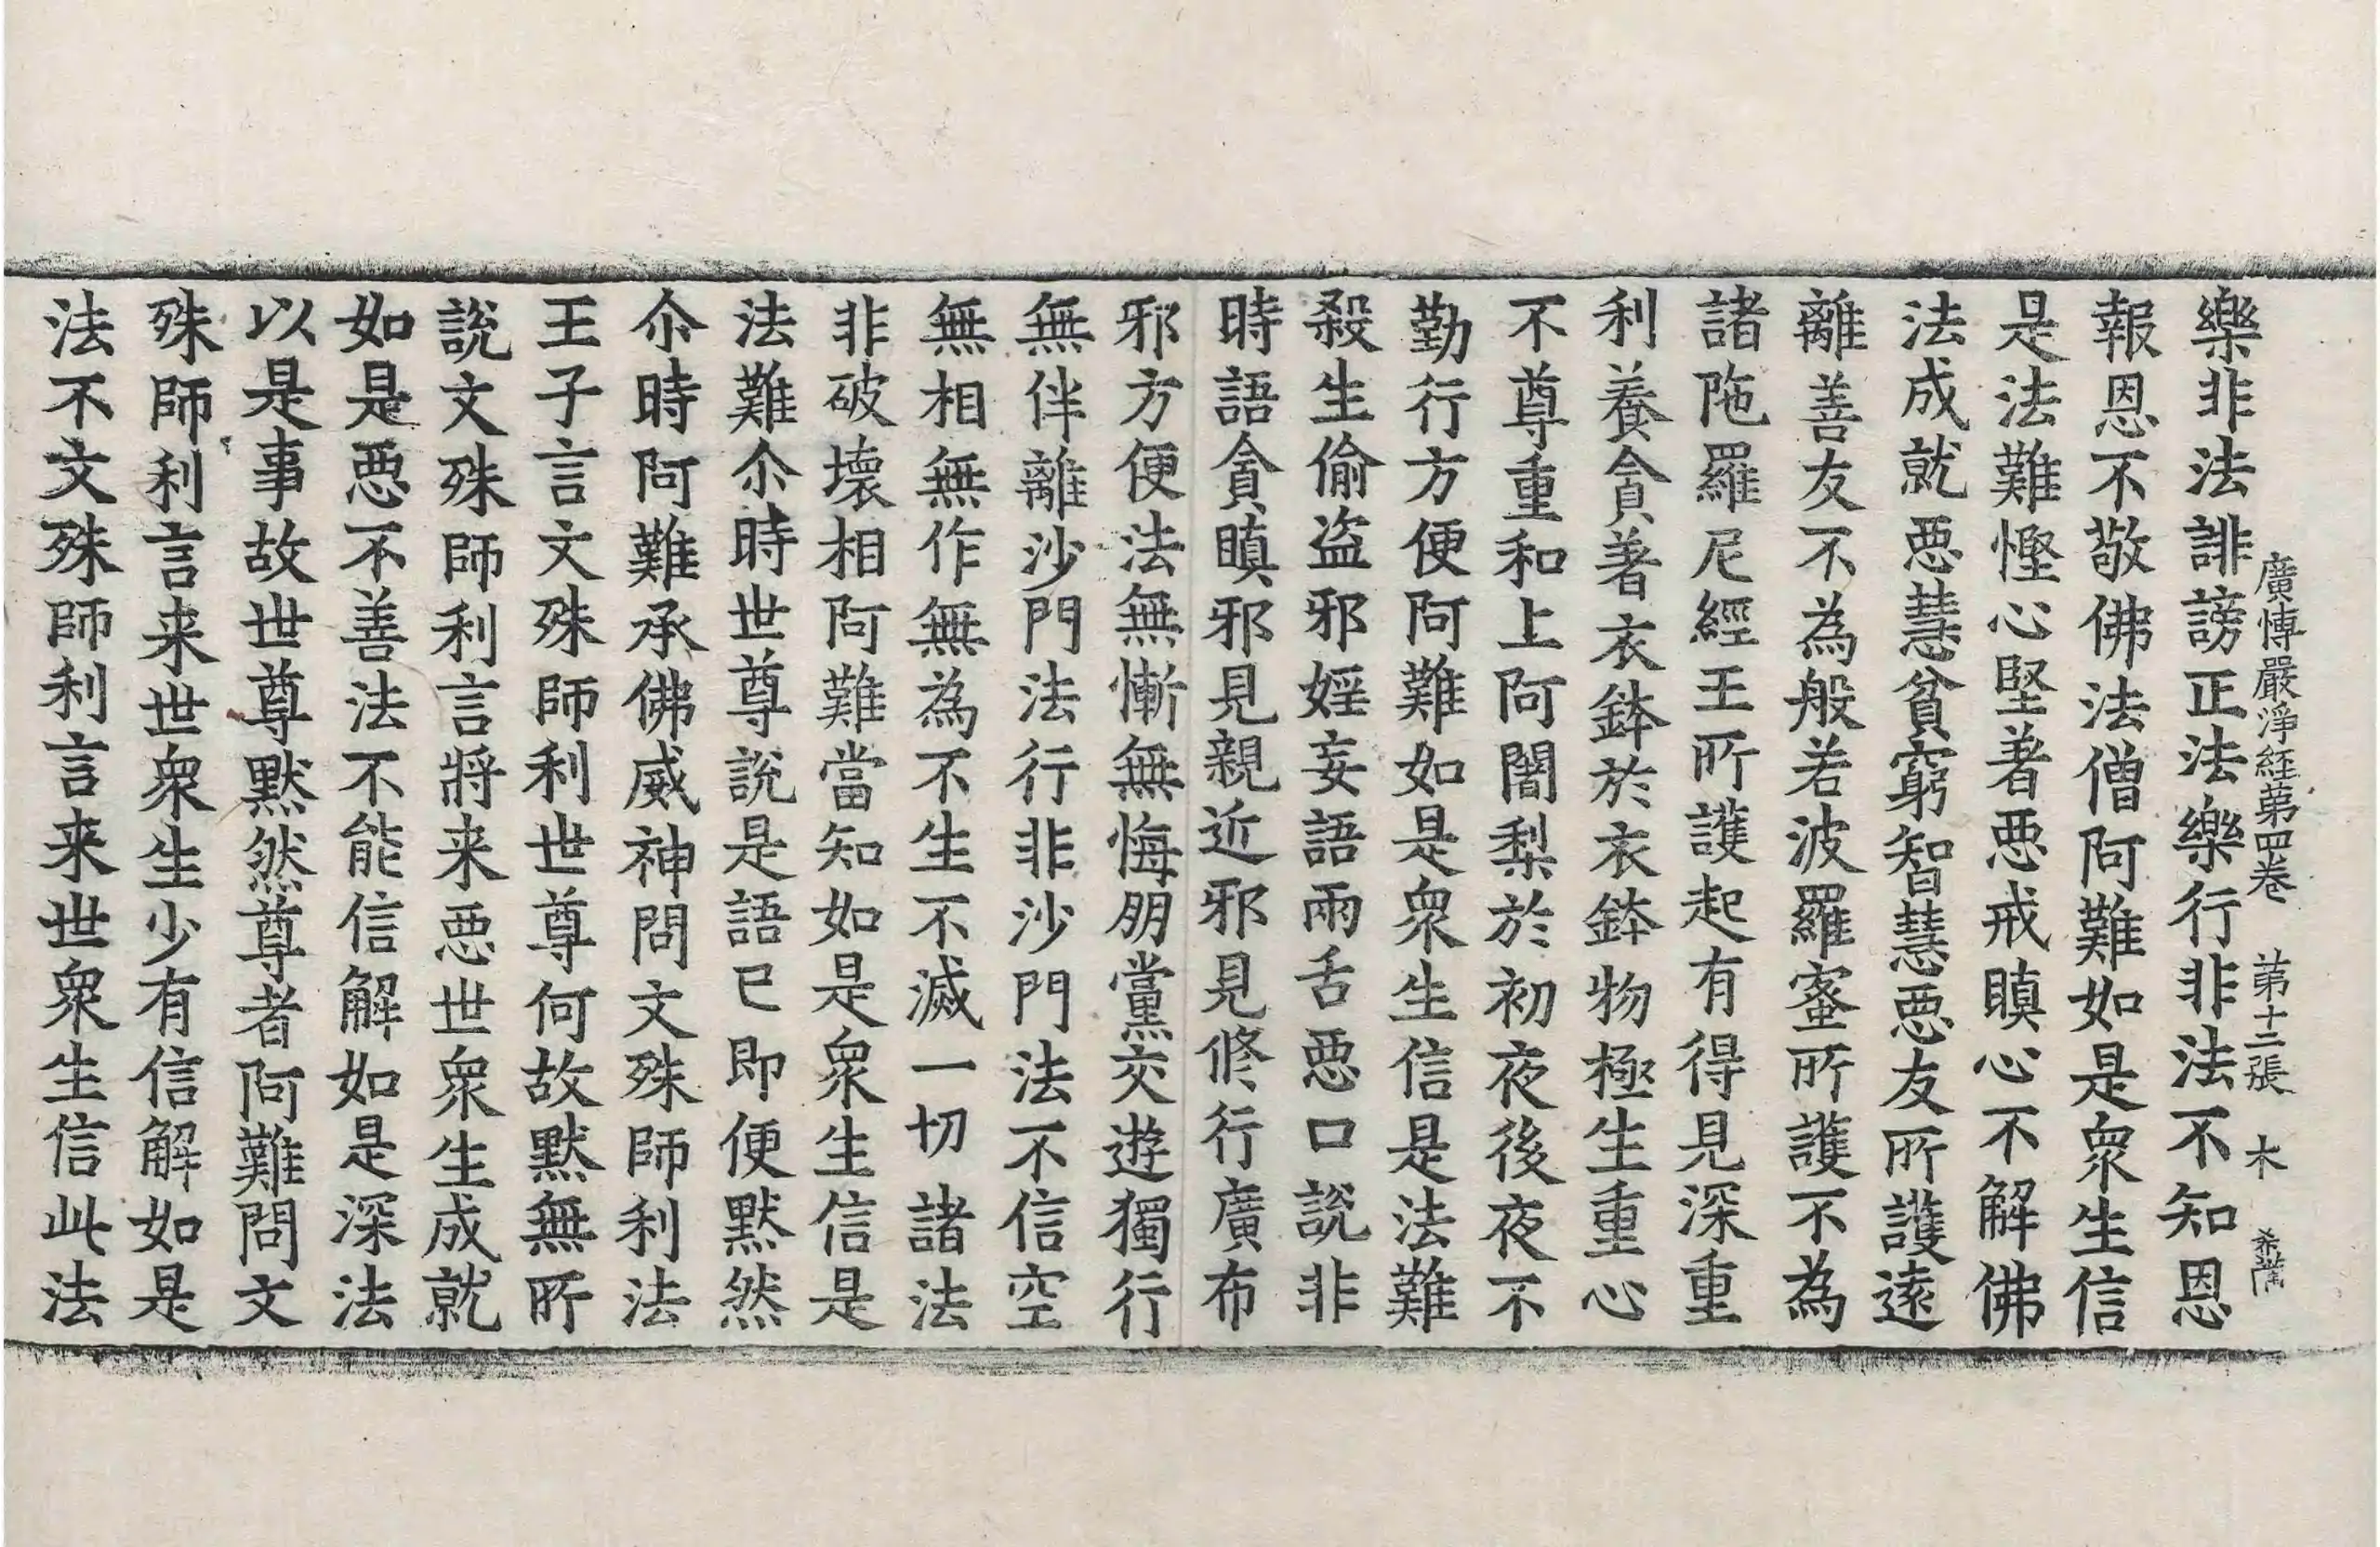 廣愽嚴淨経苐四卷 苐十二張 木
樂非法誹謗正法樂行非法不知恩
報恩不敬佛法僧阿難如是衆生信
是法難慳心堅著惡戒瞋心不解佛
法成就惡慧貧窮智慧惡友所護遠
離善友不為般若波羅蜜所護不為
諸陁羅尼經王所護起有得見深重
利養貪著衣鉢於衣鉢物極生重心
不尊重和上阿闍梨於初夜後夜不
勤行方便阿難如是衆生信是法難
殺生偷盜邪婬妄語兩舌惡口說非
時語貪瞋邪見親近邪見修行廣布
邪方便法無慚無悔朋黨交遊獨行
無伴離沙門法行非沙門法不信空
無相無作無為不生不滅一切諸法
非破壞相阿難當知如是衆生信是
法難尒時世尊說是語已即便默然
尒時阿難承佛威神問文殊師利法
王子言文殊師利世尊何故默無所
說文殊師利言將来惡世衆生成就
如是惡不善法不能信解如是深法
以是事故世尊默然尊者阿難問文
殊師利言来世衆生少有信解如是
法不文殊師利言来世衆生信此法